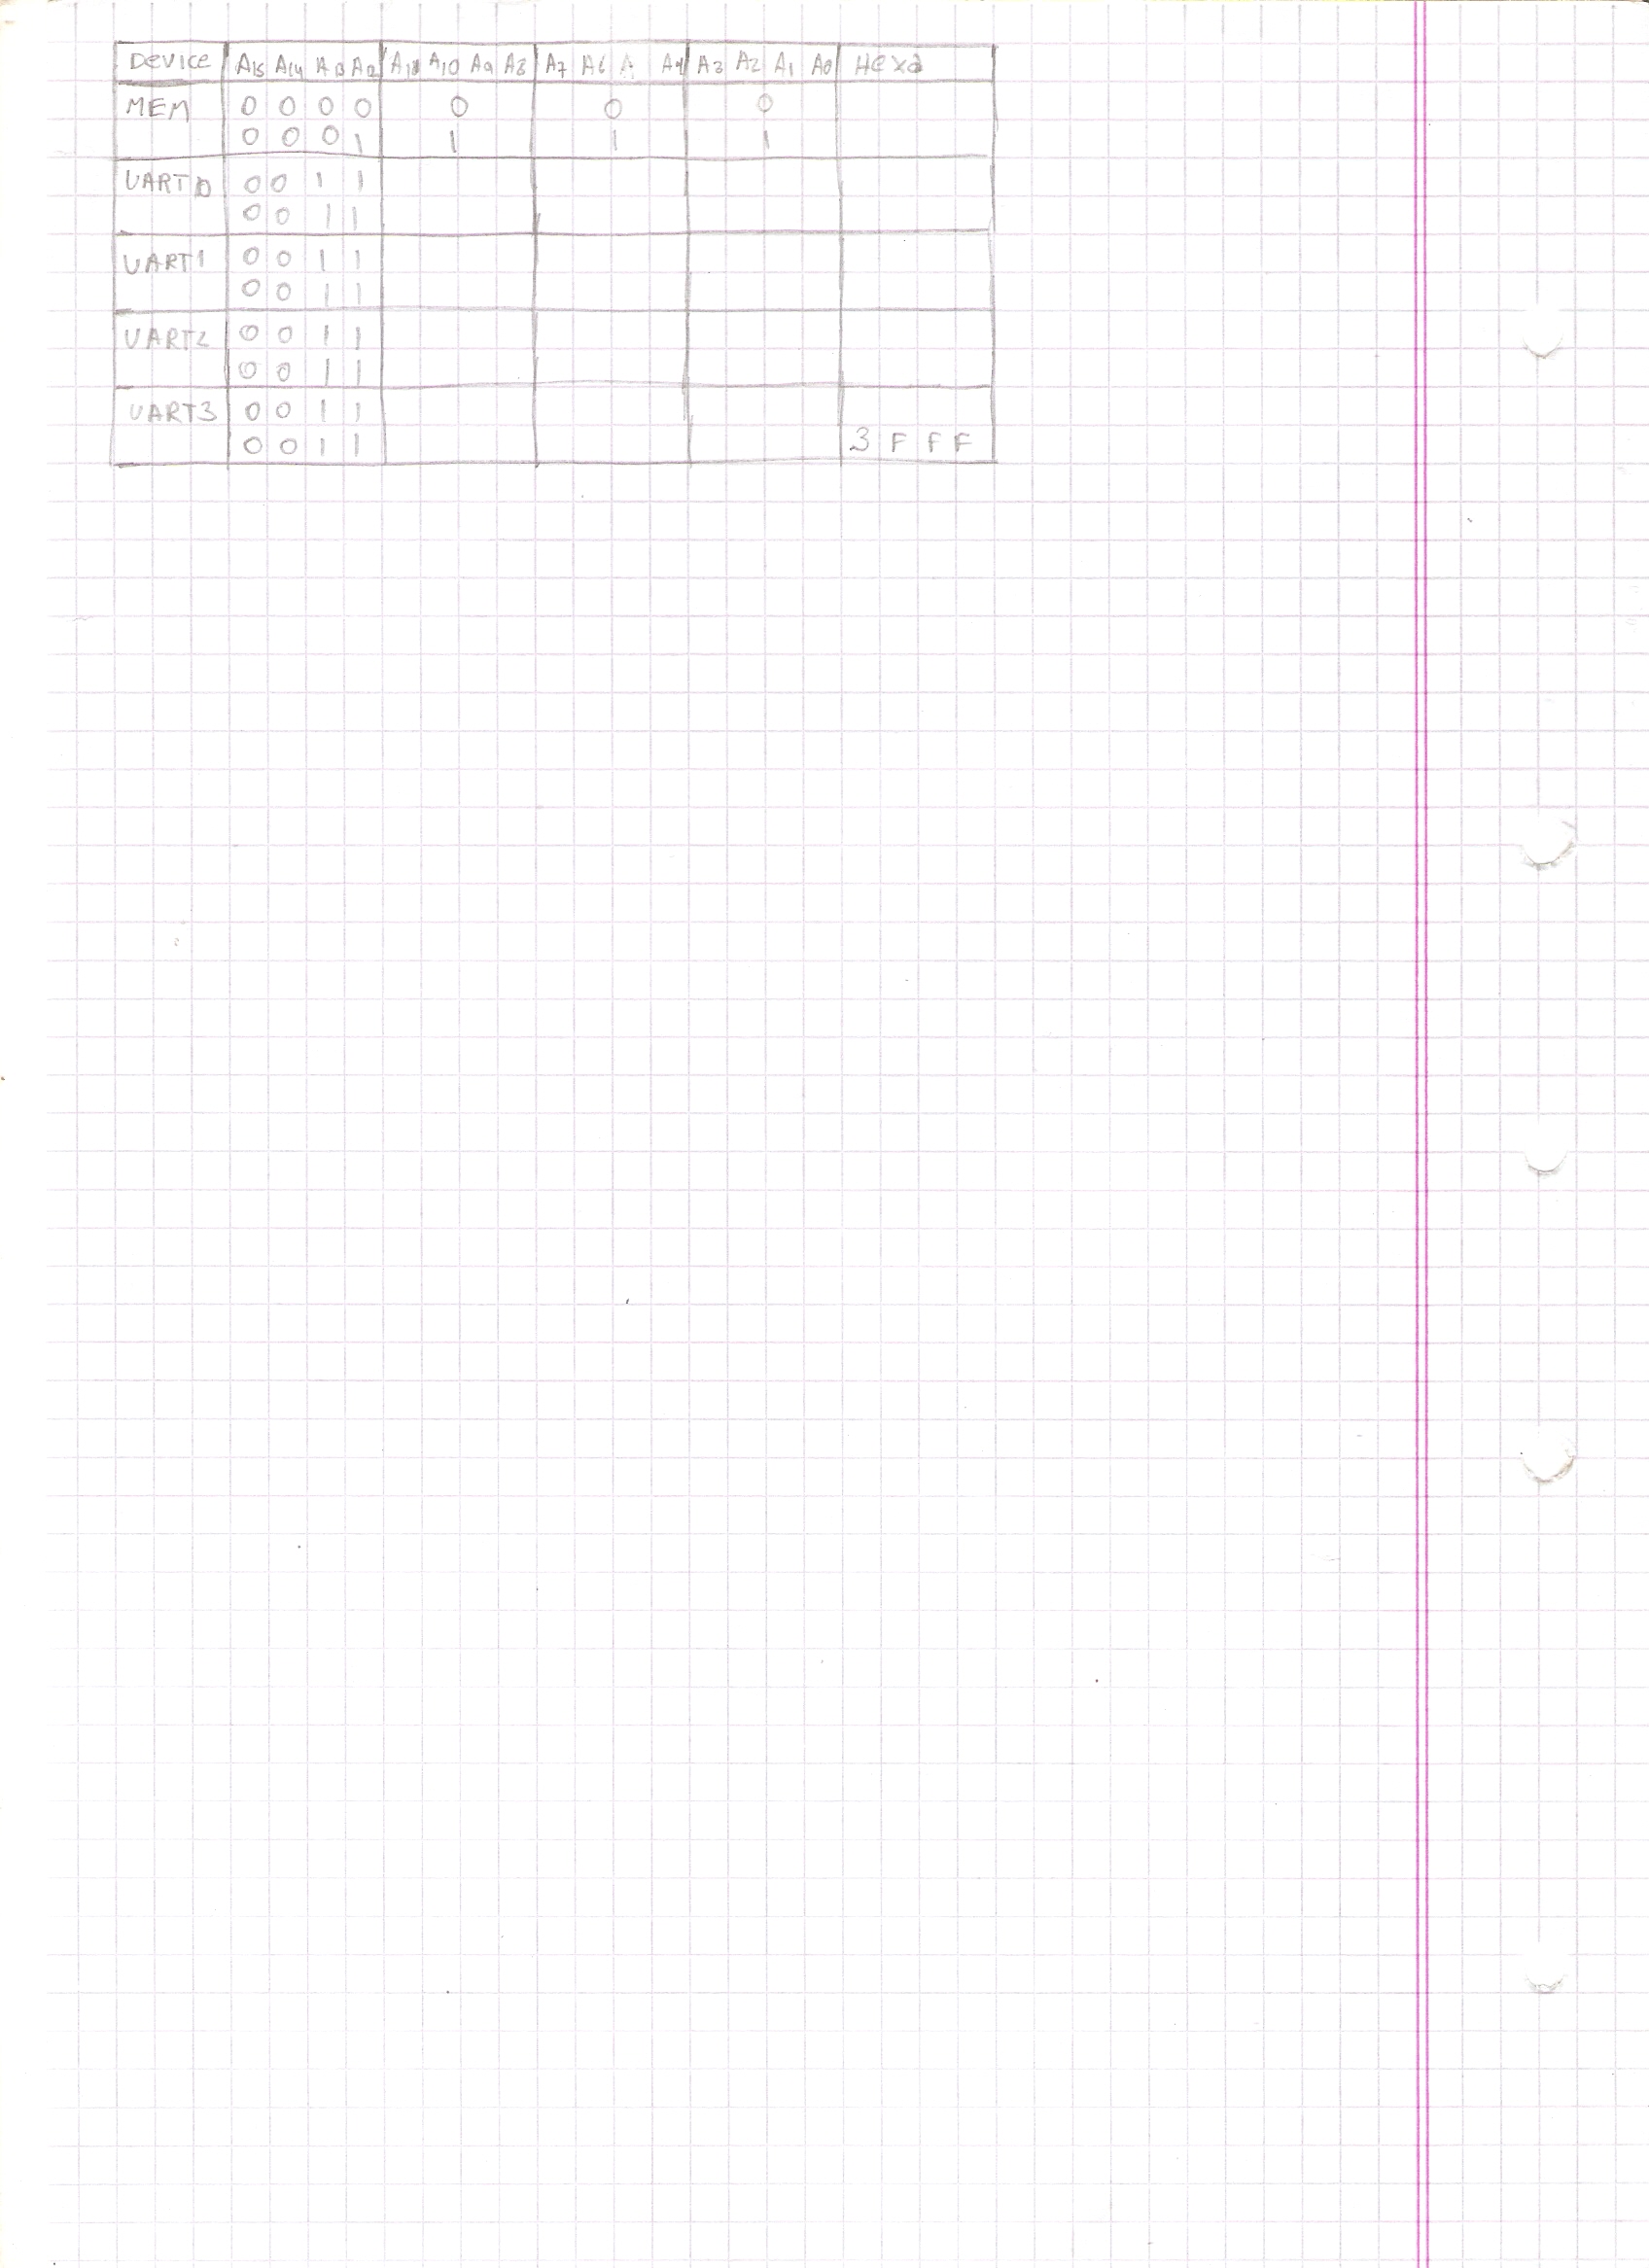 Device A15 A14 A13 A12 A11 A10 A9 A8 A7 A6 A A4 A3 A2 A1 A0 Hexa
MEM 0 0 0 0 0 0 0
0 0 0 1 1 1 1
UART0 0 0 1 1
0 0 1 1
UART1 0 0 1 1
0 0 1 1
UART2 0 0 1 1
0 0 1 1
UART3 0 0 1 1
0 0 1 1 3 F F F